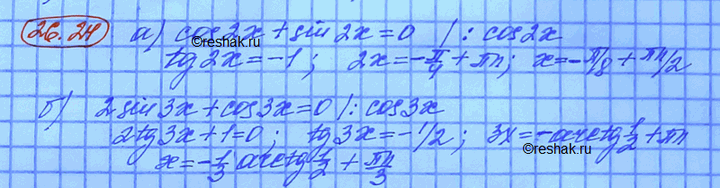 26.24 а) cos2x + sin 2x = 0 /: cos2x
©reshak.ru
tg 2x = -1 ; 2x = -π/4 + πn ; x = -π/8 + πn/2
б) 2sin3x + cos3x = 0 /: cos3x
2tg3x + 1 = 0 ; tg3x = -1/2 ; 3x = -arctg 1/2 + πn
x = -1/3 arctg 1/2 + πn/3
©reshak.ru